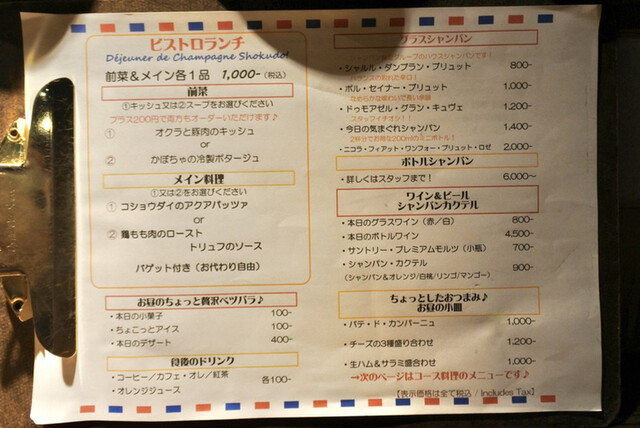 ビストロランチ
Déjeuner de Champagne Shokudo!
前菜&メイン各1品 1,000-(税込)
前菜
①キッシュ又は②スープをお選びください
プラス200円で両方もオーダーいただけます♪
① オクラと豚肉のキッシュ
or
② かぼちゃの冷製ポタージュ
メイン料理
①又は②をお選びください
① コショウダイのアクアパッツァ
or
② 鶏もも肉のロースト
トリュフのソース
バゲット付き(お代わり自由)
お昼のちょっと贅沢ベツバラ♪
・本日の小菓子 100-
・ちょこっとアイス 100-
・本日のデザート 400-
食後のドリンク
・コーヒー/カフェ・オレ/紅茶 各100-
・オレンジジュース
グラスシャンパン
・シャルル・ダンプラン・ブリュット 800-
・ポル・セイナー・ブリュット 1,000-
・ドゥモアゼル・グラン・キュヴェ 1,200-
スタッフイチオシ!!
・今日の気まぐれシャンパン 1,400-
2杯分でお得な200mlのミニボトル!
・ニコラ・フィアット・ワンフォー・ブリュット・ロゼ 2,000-
ボトルシャンパン
・詳しくはスタッフまで! 6,000~
ワイン&ビール
シャンパンカクテル
・本日のグラスワイン(赤/白) 800-
・本日のボトルワイン 4,500-
・サントリー・プレミアムモルツ(小瓶) 700-
・シャンパン・カクテル 900-
(シャンパン&オレンジ/白桃/リンゴ/マンゴー)
ちょっとしたおつまみ♪
お昼の小皿
・パテ・ド・カンパーニュ 1,000-
・チーズの3種盛り合わせ 1,200-
・生ハム&サラミ盛合わせ 1,000-
→次のページはコース料理のメニューです♪
【表示価格は全て税込 / Includes Tax】